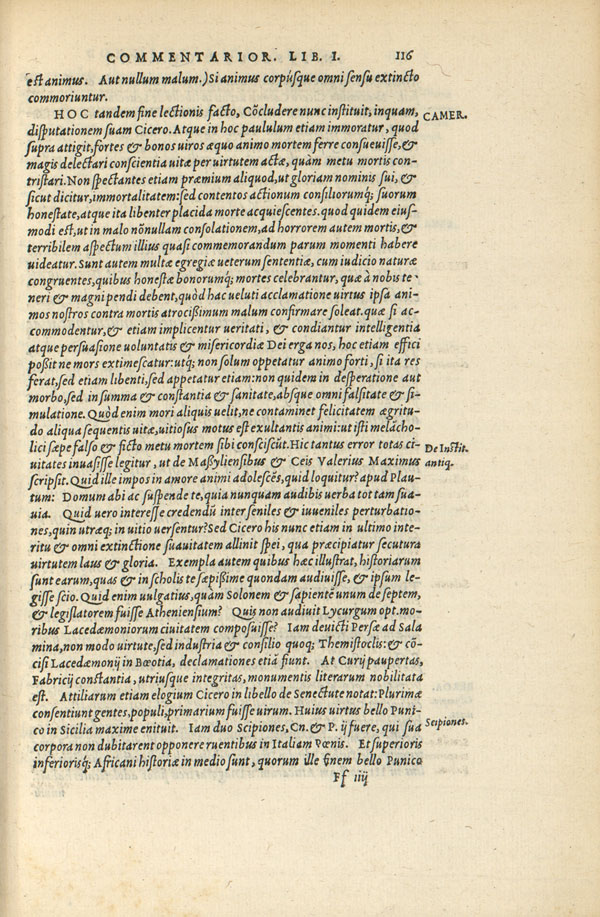 COMMENTARIOR. LIB. I. 116
est animus. Aut nullum malum.) Si animus corpúsque omni sensu extincto
commoriuntur.
HOC tandem fine lectionis facto, Cōcludere nunc instituit, inquam,
CAMER.
disputationem suam Cicero. Atque in hoc paululum etiam immoratur, quod
supra attigit, fortes & bonos uiros æquo animo mortem ferre consueuisse, &
magis delectari conscientia uitæ per uirtutem actæ, quàm metu mortis con-
tristari. Non spectantes etiam præmium aliquod, ut gloriam nominis sui, &
sicut dicitur, immortalitatem: sed contentos actionum consiliorumq; suorum
honestate, atque ita libenter placida morte acquiescentes. quod quidem eius-
modi est, ut in malo nōnullam consolationem, ad horrorem autem mortis, &
terribilem aspectum illius quasi commemorandum parum momenti habere
uideatur. Sunt autem multæ egregiæ ueterum sententiæ, cum iudicio naturæ
congruentes, quibus honestæ bonorumq; mortes celebrantur, quæ à nobis te-
neri & magni pendi debent, quòd hac ueluti acclamatione uirtus ipsa ani-
mos nostros contra mortis atrocißimum malum confirmare soleat. quæ si ac-
commodentur, & etiam implicentur ueritati, & condiantur intelligentia
atque persuasione uoluntatis & misericordiæ Dei erga nos, hoc etiam effici
poßit ne mors extimescatur: utq; non solum oppetatur animo forti, si ita res
ferat, sed etiam libenti, sed appetatur etiam: non quidem in desperatione aut
morbo, sed in summa & constantia & sanitate, absque omni falsitate & si-
mulatione. Quòd enim mori aliquis uelit, ne contaminet felicitatem ægritu-
do aliqua sequentis uitæ, uitiosus motus est exultantis animi: ut isti melācho-
lici sæpe falso & ficto metu mortem sibi consciscūt. Hic tantus error totas ci-
De Instit.
uitates inuasisse legitur, ut de Maßyliensibus & Ceis Valerius Maximus
antiq.
scripsit. Quid ille impos in amore animi adolescēs, quid loquitur? apud Plau-
tum: Domum abi ac suspende te, quia nunquam audibis uerba tot tam sua-
uia. Quid uero interesse credendū inter seniles & iuueniles perturbatio-
nes, quin utræq; in uitio uersentur? Sed Cicero his nunc etiam in ultimo inte-
ritu & omni extinctione suauitatem allinit spei, qua præcipiatur secutura
uirtutem laus & gloria. Exempla autem quibus hæc illustrat, historiarum
sunt earum, quas & in scholis te sæpißime quondam audiuisse, & ipsum le-
gisse scio. Quid enim uulgatius, quàm Solonem & sapientē unum de septem,
& legislatorem fuisse Atheniensium? Quis non audiuit Lycurgum opt. mo-
ribus Lacedæmoniorum ciuitatem composuisse? Iam deuicti Persæ ad Sala
mina, non modo uirtute, sed industria & consilio quoq; Themistoclis: & cō-
cisi Lacedæmonij in Bœotia, declamationes etiā fiunt. At Curij paupertas,
Fabricij constantia, utriusque integritas, monumentis literarum nobilitata
est. Attiliarum etiam elogium Cicero in libello de Senectute notat: Plurimæ
consentiunt gentes, populi, primarium fuisse uirum. Huius uirtus bello Puni-
co in Sicilia maxime enituit. Iam duo Scipiones, Cn. & P. ij fuere, qui sua
Scipiones.
corpora non dubitarent opponere ruentibus in Italiam Pœnis. Et superioris
inferiorisq; Africani historiæ in medio sunt, quorum ille finem bello Punico
Ff iiij